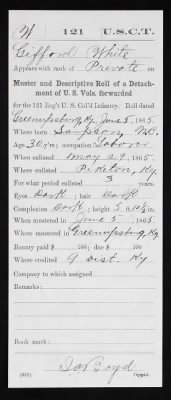 W | 121 | U.S.C.T.
Gifford White
Appears with rank of Private on
Muster and Descriptive Roll of a Detach-
ment of U. S. Vols. forwarded
for the 121 Reg't U. S. Col'd Infantry. Roll dated
Greenupsburg, Ky. June 5, 1865.
Where born Sampson, N.C.
Age 30 y'rs; occupation Laborer
When enlisted May 29, 1865.
Where enlisted Piketon, Ky.
For what period enlisted 3 years.
Eyes Dark; hair Dark
Complexion Dark; height 5 ft. 10½ in.
When mustered in June 5, 1865.
Where mustered in Greenupsburg, Ky
Bounty paid $ 100; due $ 100
Where credited 9 Dist. Ky
Company to which assigned
Remarks:
Book mark:
Boyd
(339) Copyist.